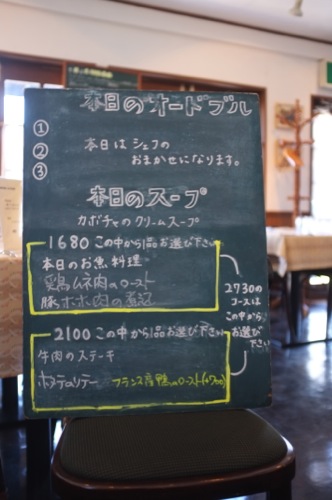 本日のオードブル
①
② 本日はシェフの
③ おまかせになります。
本日のスープ
カボチャのクリームスープ
1680 この中から1品お選び下さい
本日のお魚料理
鶏ムネ肉のロースト
豚ホホ肉の煮込
2100 この中から1品お選び下さい
牛肉のステーキ
ポテのソテー フランス産鴨のロースト(+700)
2730の
コースは
この中から
お選び
下さい